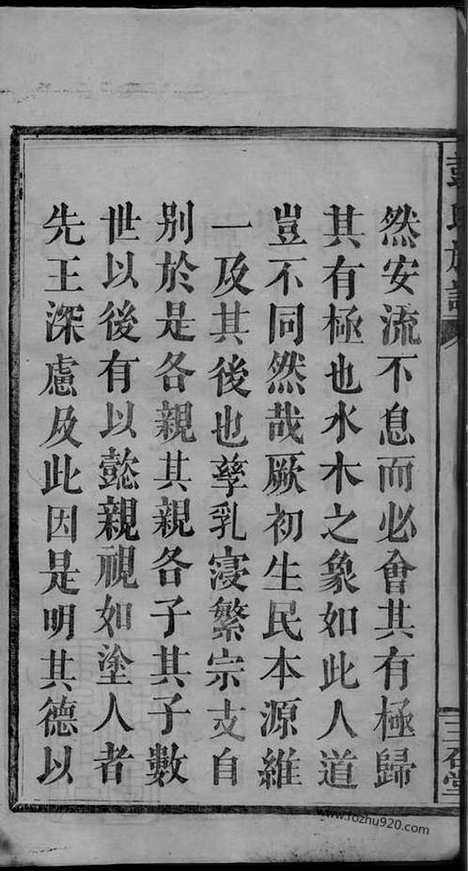 然安流不息而必會其有極歸
其有極也水木之象如此人道
豈不同然哉厥初生民本源維
一及其後也孳乳寖繁宗支自
别於是各親其親各子其子數
世以後有以懿親視如塗人者
先王深慮及此因是明其德以
www.fozhu920.com